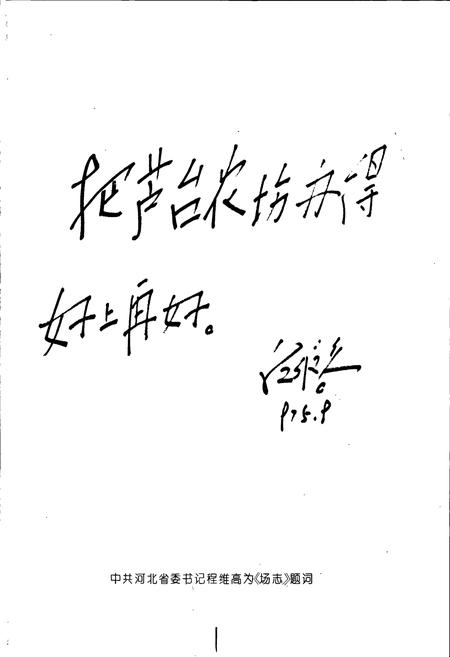 把芦台农场办得
好上再好。
中共河北省委书记程维高为《场志》题词
1